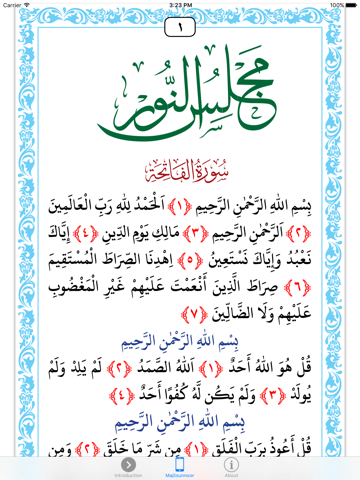 Carrier 3:23 PM 100%
١
مجلس النور
سُورَةُ الْفَاتِحَة
بِسْمِ اللهِ الرَّحْمٰنِ الرَّحِيمِ ﴿١﴾ اَلْحَمْدُ لِلهِ رَبِّ الْعَالَمِينَ
﴿٢﴾ اَلرَّحْمٰنِ الرَّحِيمِ ﴿٣﴾ مَالِكِ يَوْمِ الدِّينِ ﴿٤﴾ إِيَّاكَ
نَعْبُدُ وَإِيَّاكَ نَسْتَعِينُ ﴿٥﴾ اِهْدِنَا الصِّرَاطَ الْمُسْتَقِيمَ
﴿٦﴾ صِرَاطَ الَّذِينَ أَنْعَمْتَ عَلَيْهِمْ غَيْرِ الْمَغْضُوبِ
عَلَيْهِمْ وَلَا الضَّالِّينَ ﴿٧﴾
بِسْمِ اللهِ الرَّحْمٰنِ الرَّحِيمِ
قُلْ هُوَ اللهُ أَحَدٌ ﴿١﴾ اَللهُ الصَّمَدُ ﴿٢﴾ لَمْ يَلِدْ وَلَمْ
يُولَدْ ﴿٣﴾ وَلَمْ يَكُن لَّهُ كُفُوًا أَحَدٌ ﴿٤﴾
بِسْمِ اللهِ الرَّحْمٰنِ الرَّحِيمِ
قُلْ أَعُوذُ بِرَبِّ الْفَلَقِ ﴿١﴾ مِن شَرِّ مَا خَلَقَ ﴿٢﴾ وَمِن
Introduction Majlisunnoor About